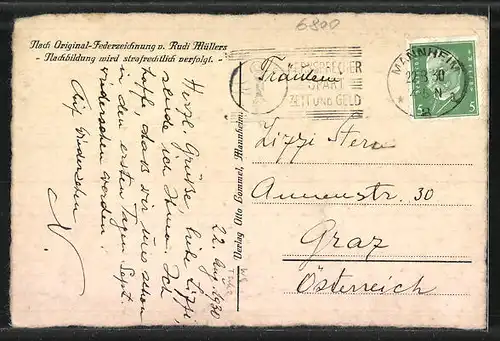 6800
Nach Original-Federzeichnung v. Rudi Müllers
- Nachbildung wird strafrechtlich verfolgt. -
FERNSPRECHER
SPART
ZEIT UND GELD
MANNHEIM
5 5
Herzl. Grüße, liebe Lizzi,
sende ich Ihnen. Ich
hoffe, daß wir uns schon
in den ersten Tagen Sept.
wiedersehen werden.
Auf Wiedersehen
N.
22. Aug. 1930
Verlag Otto Hommel, Mannheim
Fräulein
Lizzi Stern
Annenstr. 30
Graz
Österreich